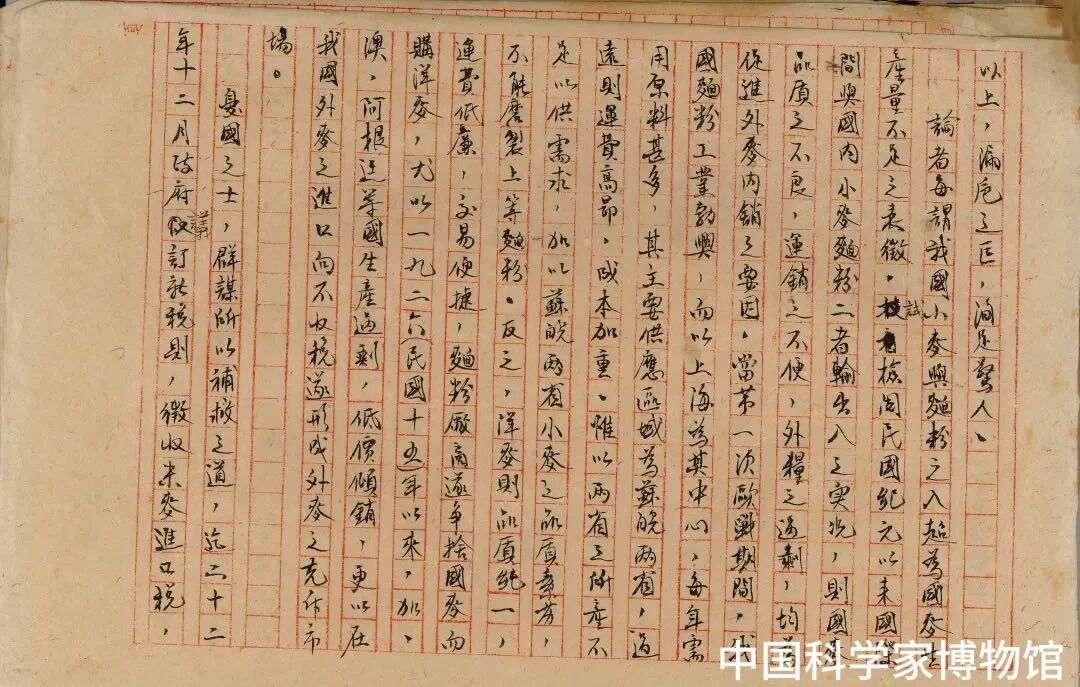 以上，漏卮之巨，洵足驚人。
論者每謂我國小麥與麵粉之入超為國麥生
產量不足之表徵。試檢閱民國紀元以來國際
間與國內小麥麵粉二者輸出入之實況，則國麥
品質之不良，運銷之不便，外糧之過剩，均為
促進外麥內銷之要因。當第一次歐戰期間，我
國麵粉工業勃興，而以上海為其中心，每年需
用原料甚多，其主要供應區域為蘇皖兩省，過
遠則運費高昂，成本加重。惟以兩省之所產不
足以供需求，加以蘇皖兩省小麥之品質羼雜，
不能磨製上等麵粉。反之，洋麥則品質純一，
運費低廉，交易便捷，麵粉廠商遂爭捨國麥而
購洋麥，尤以一九二六民國十五年以來，加、
澳、阿根廷等國生產過剩，低價傾銷，更以在
我國外麥之進口向不收稅遂形成外麥之充斥市
場。
憂國之士，群謀所以補救之道，迄二十二
年十二月政府議訂新稅則，徵收米麥進口稅，
中国科学家博物馆